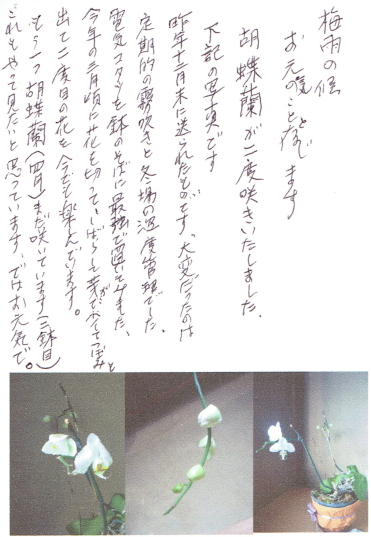 梅雨の候
お元気のことと存じます
胡蝶蘭が二度咲きいたしました。
下記の写真です
昨年十二月末に送られたものです。大変だったのは
定期的の霧吹きと冬場の温度管理でした。
電気コタツを鉢のそばに最強で置いてみました、
今年の三月頃に花を切って、しばらくして芽が ふくてつぼみと
出て二度目の花を今でも楽んでいます。
もう一つ胡蝶蘭(四月)まだ咲いています(二鉢目)
これもやって見たいと思っています、ではお元気で。